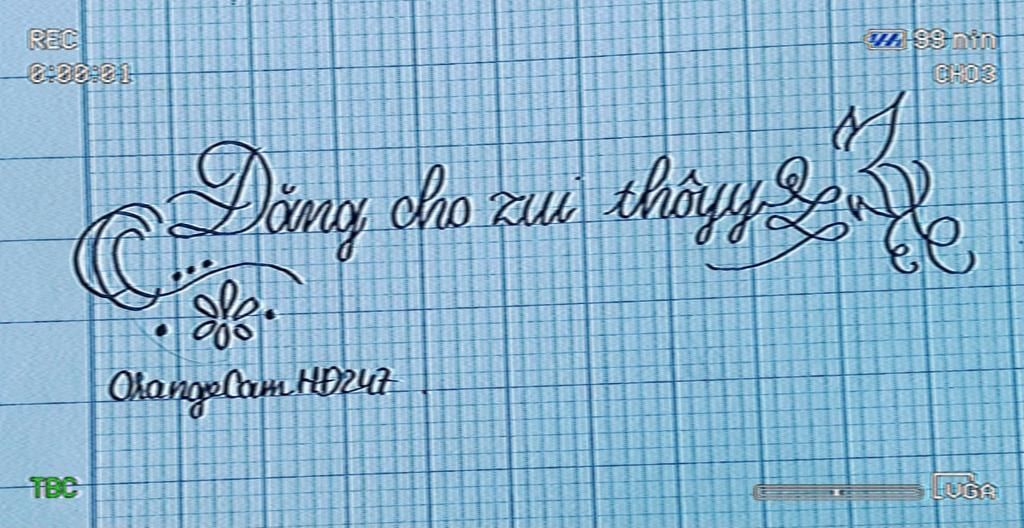 REC
99 min
0:00:01
CH03
Đăng cho zui thôyy
OrangeCamHD247
TBC
VGA